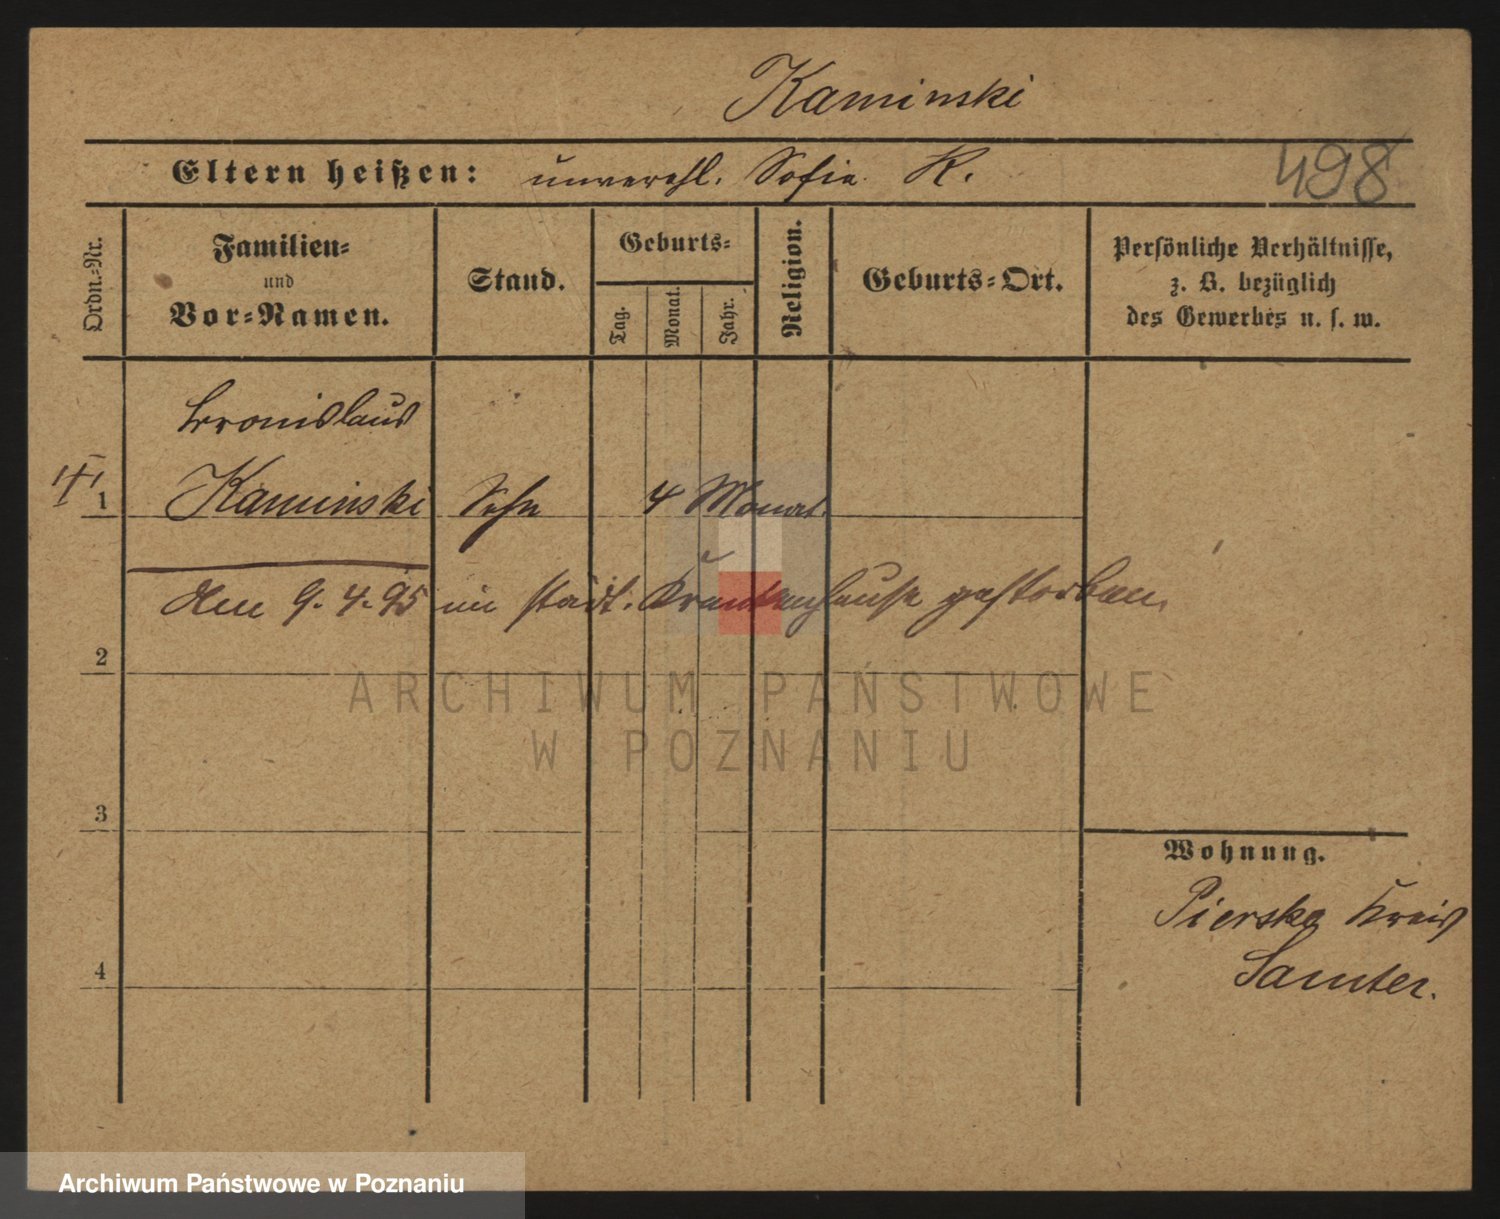 Kaminski
Eltern heißen: unverehl. Sofia K.
498
Ordn.-Nr.
Familien-
und
Vor-Namen.
Stand.
Geburts-
Tag.
Monat.
Jahr.
Religion.
Geburts-Ort.
Persönliche Verhältnisse,
z. B. bezüglich
des Gewerbes u. s. w.
Bronislaus
1 Kaminski Sohn 4 Monat.
den 9.4.95 im städt. Krankenhause gestorben.
2
ARCHIWUM PAŃSTWOWE
W POZNANIU
3
Wohnung.
Pierska Kreis
Samter.
4
Archiwum Państwowe w Poznaniu